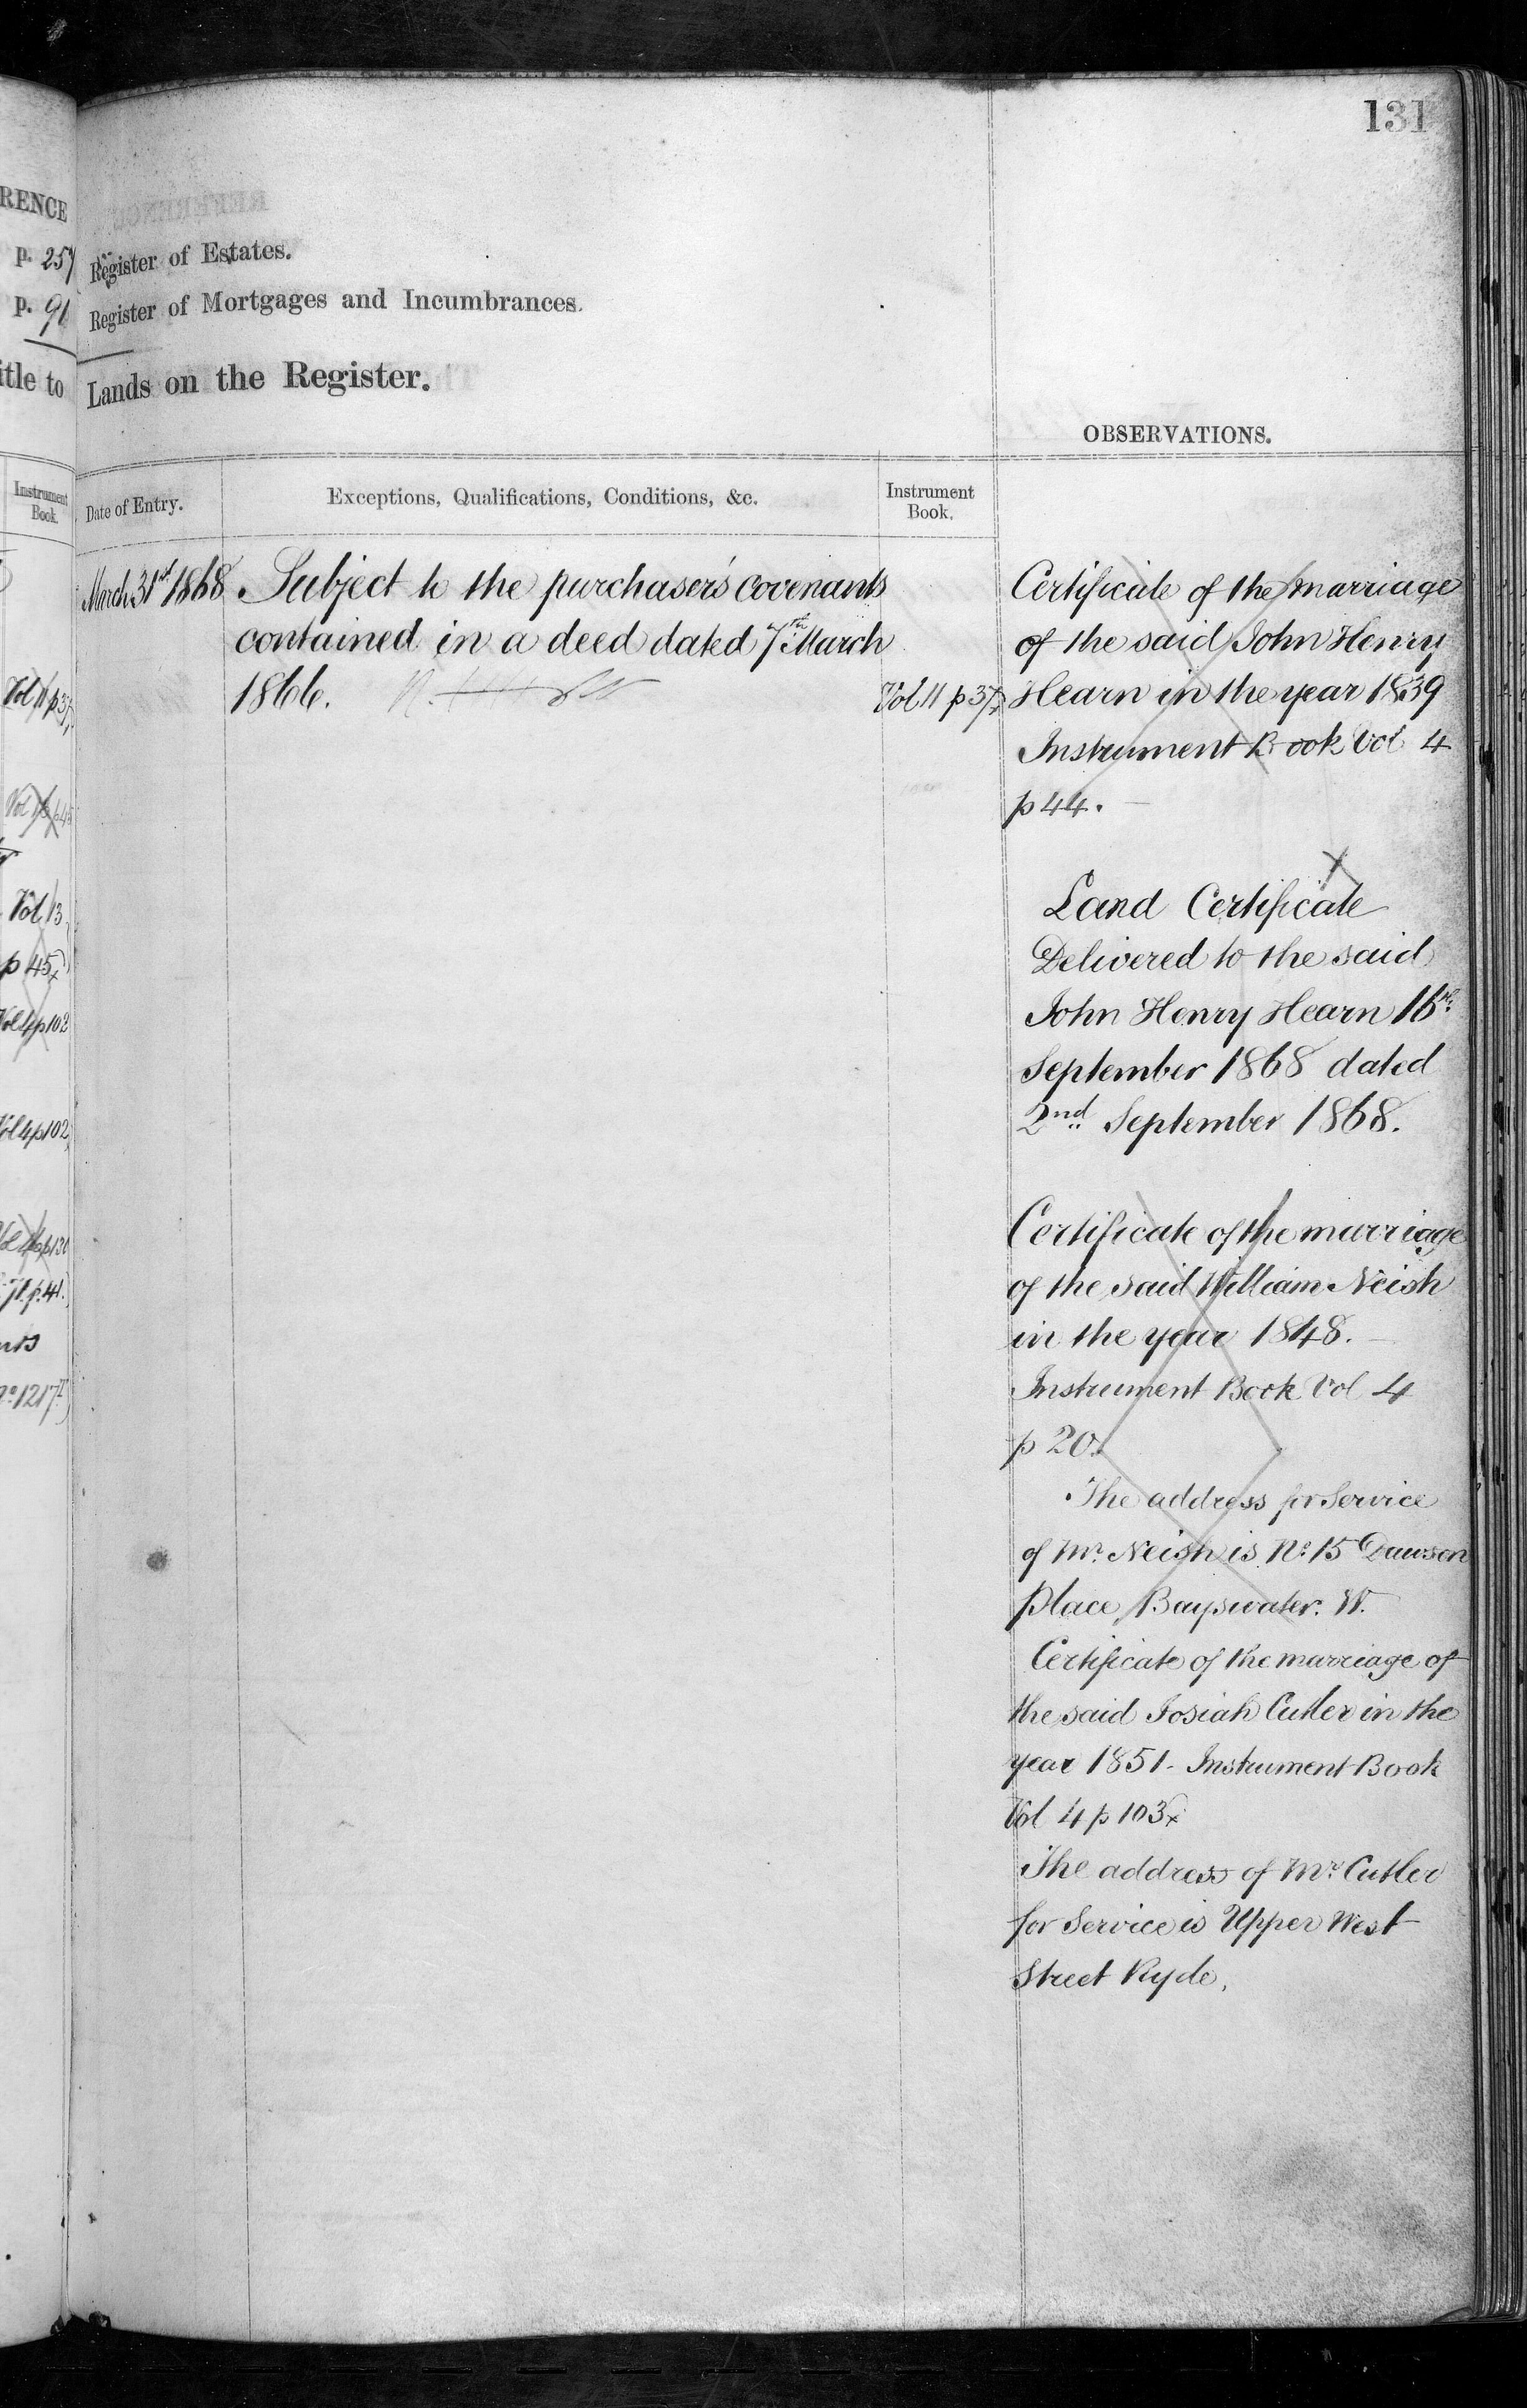 131
RENCE
p. 257
p. 91
itle to
Instrument
Book.
Vol 11 p 37
Vol 13
p 45
Vol 4 p 102
Vol 4 p 102
p. 41.
No 1217
Register of Estates.
Register of Mortgages and Incumbrances.
Lands on the Register.
OBSERVATIONS.
Date of Entry.
Exceptions, Qualifications, Conditions, &c.
Instrument
Book.
March 31st 1868 Subject to the purchaser's covenants
contained in a deed dated 7th March
1866. Vol 11 p 37
Certificate of the marriage
of the said John Henry
Hearn in the year 1839
Instrument Book Vol 4
p 44.
Land Certificate
Delivered to the said
John Henry Hearn 16th
September 1868 dated
2nd September 1868.
Certificate of the marriage
of the said William Neish
in the year 1848.
Instrument Book Vol 4
p 20.
The address for Service
of Mr. Neish is No. 15 Dawson
Place, Bayswater. W.
Certificate of the marriage of
the said Josiah Cutler in the
year 1851 - Instrument Book
Vol 4 p 103
The address of Mr. Cutler
for Service is Upper West
Street Ryde.